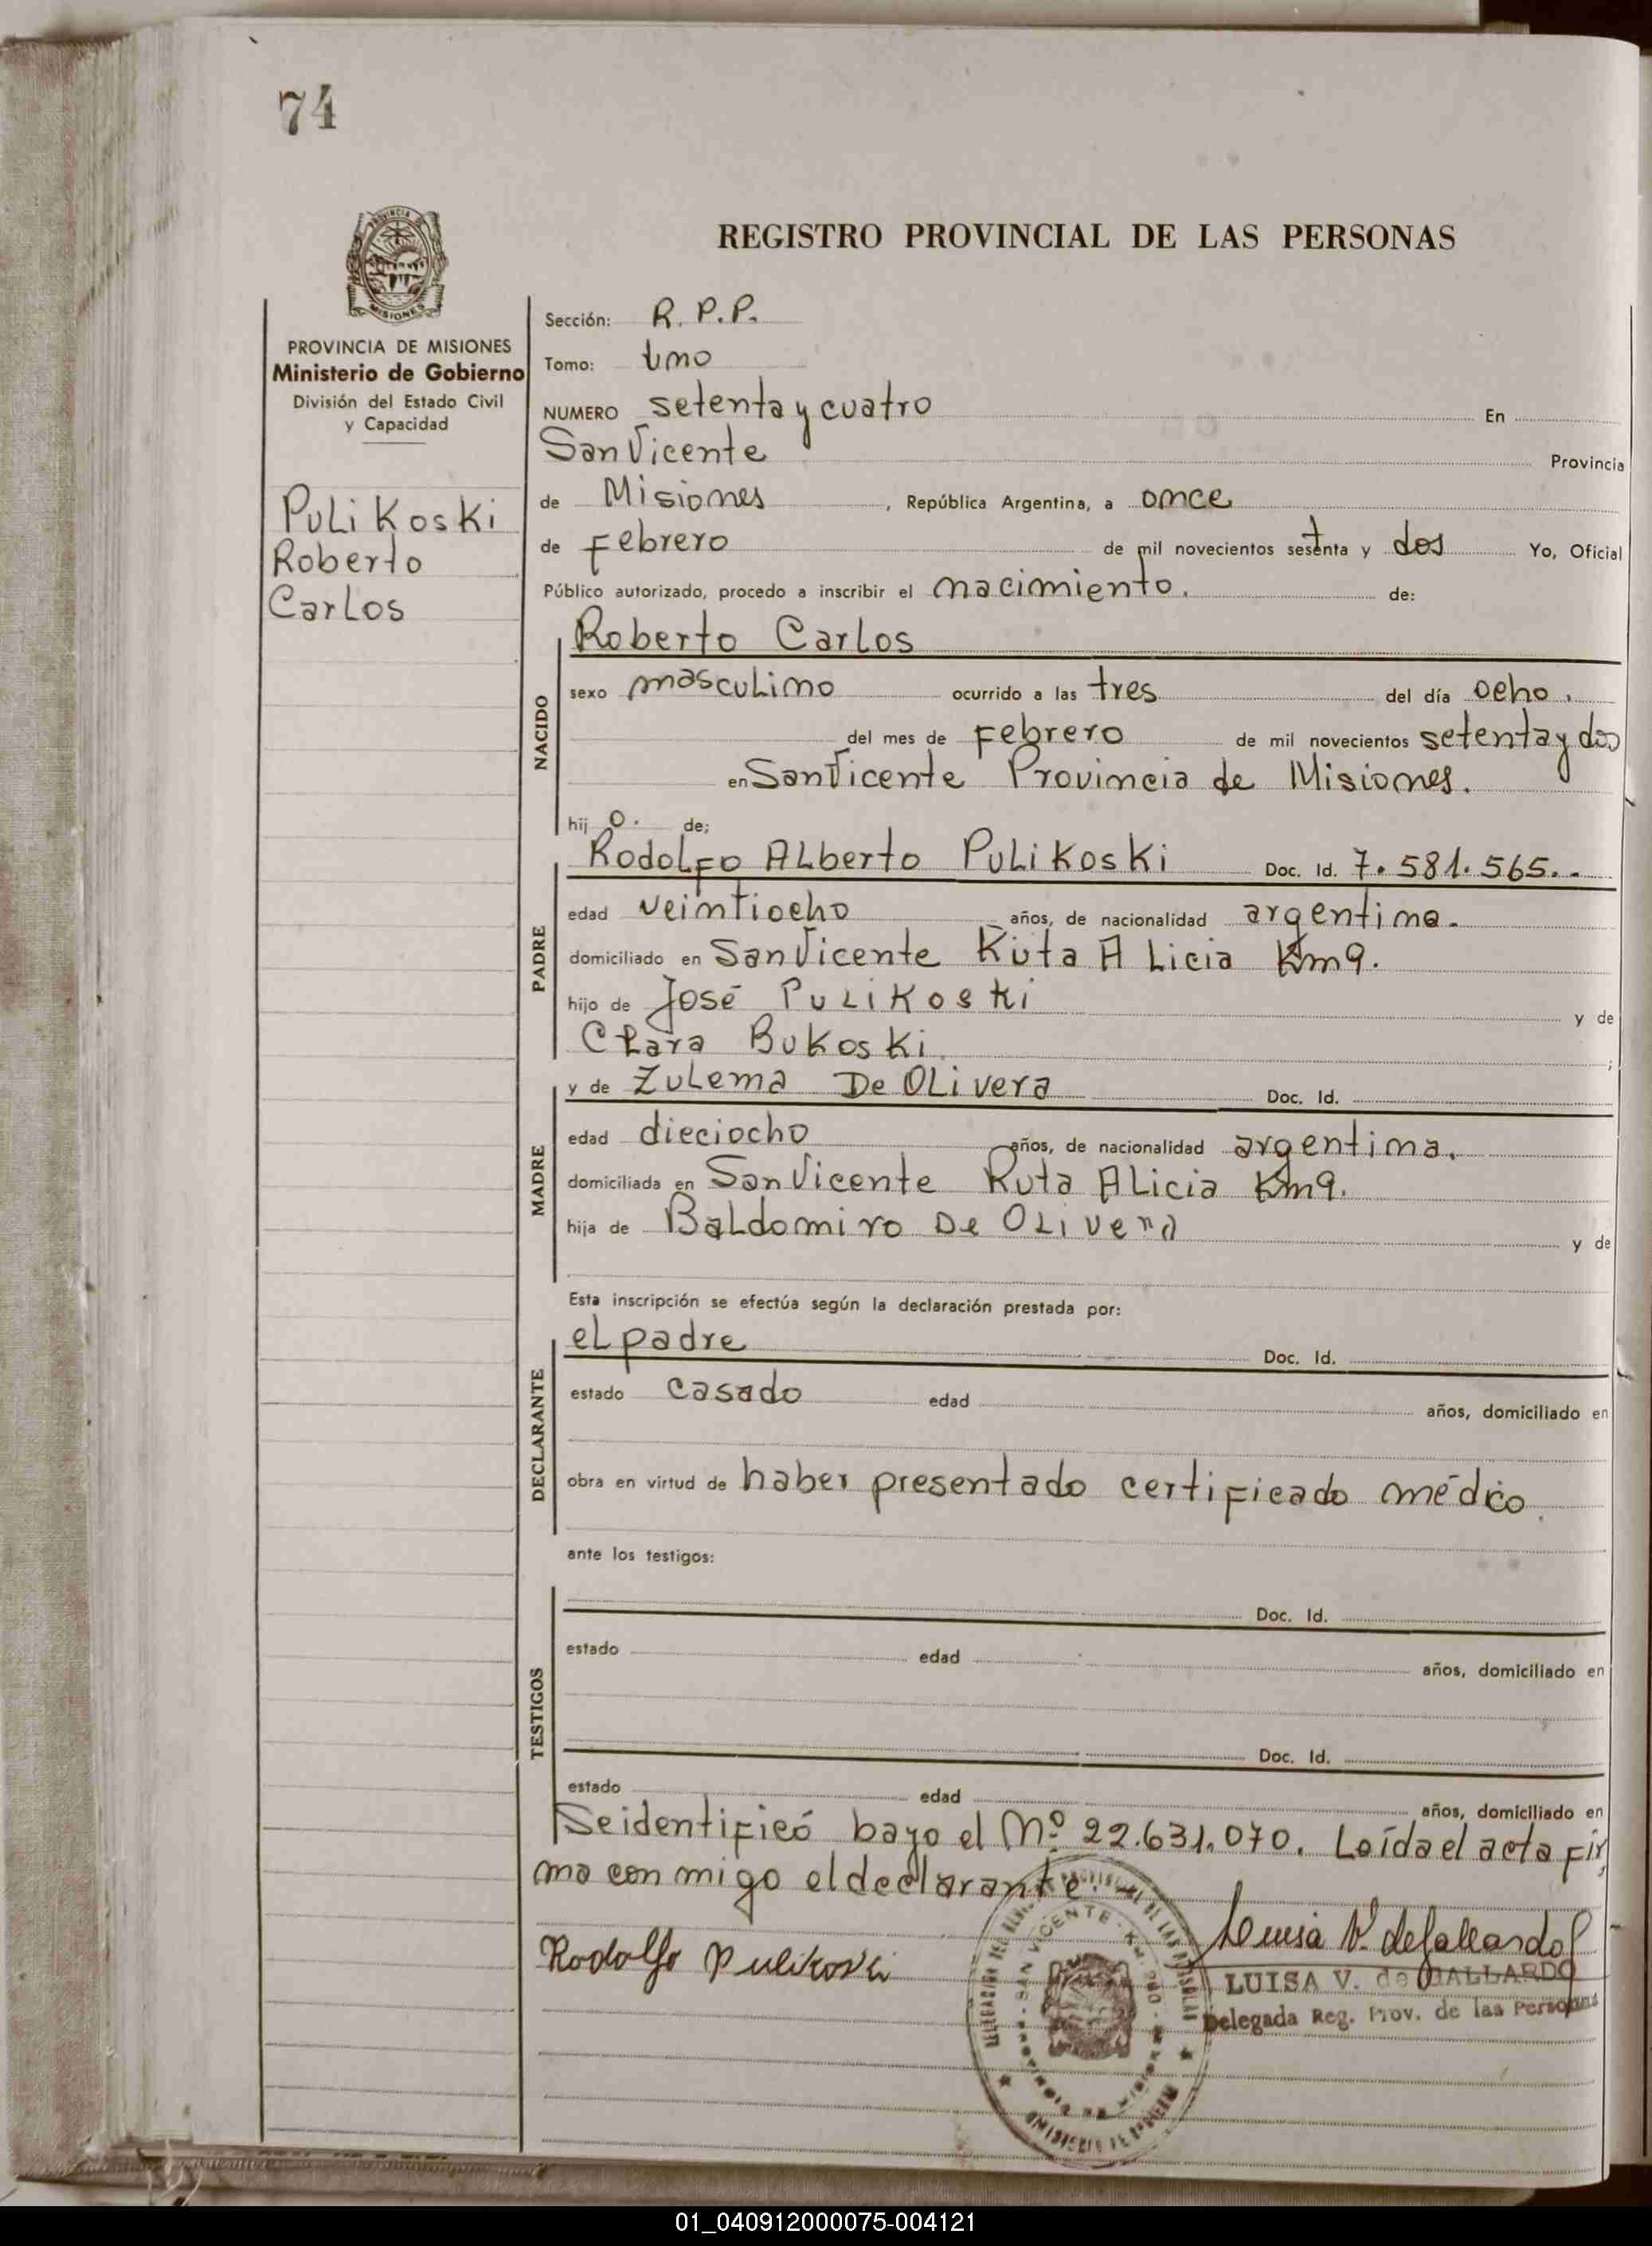 74
REGISTRO PROVINCIAL DE LAS PERSONAS
PROVINCIA DE MISIONES
Ministerio de Gobierno
División del Estado Civil
y Capacidad
Pulikoski
Roberto
Carlos
Sección: R. P. P.
Tomo: Uno
NUMERO setenta y cuatro En
San Vicente Provincia
de Misiones, República Argentina, a once
de febrero de mil novecientos setenta y dos Yo, Oficial
Público autorizado, procedo a inscribir el nacimiento. de:
NACIDO
Roberto Carlos
sexo masculino ocurrido a las tres del día ocho.
del mes de febrero de mil novecientos setenta y dos
en San Vicente Provincia de Misiones.
hij o. de;
PADRE
Rodolfo Alberto Pulikoski Doc. Id. 7.581.565.-
edad veintiocho años, de nacionalidad argentina.
domiciliado en San Vicente Ruta Alicia Km9.
hijo de José Pulikoski y de
Clara Bukoski. ;
MADRE
y de Zulema De Olivera Doc. Id.
edad dieciocho años, de nacionalidad argentina.
domiciliada en San Vicente Ruta Alicia Km9.
hija de Baldomiro De Olivera y de
Esta inscripción se efectúa según la declaración prestada por:
DECLARANTE
el padre Doc. Id.
estado casado edad años, domiciliado en
obra en virtud de haber presentado certificado médico.
ante los testigos:
TESTIGOS
Doc. Id.
estado edad años, domiciliado en
Doc. Id.
estado edad años, domiciliado en
Se identificó bayo el Nº 22.631.070. Leída el acta fir
ma con migo el declarante.
Rodolfo Pulikoski
Luisa V. de Gallardo
LUISA V. de GALLARDO
Delegada Reg. Prov. de las Personas
SAN VICENTE
01_040912000075-004121